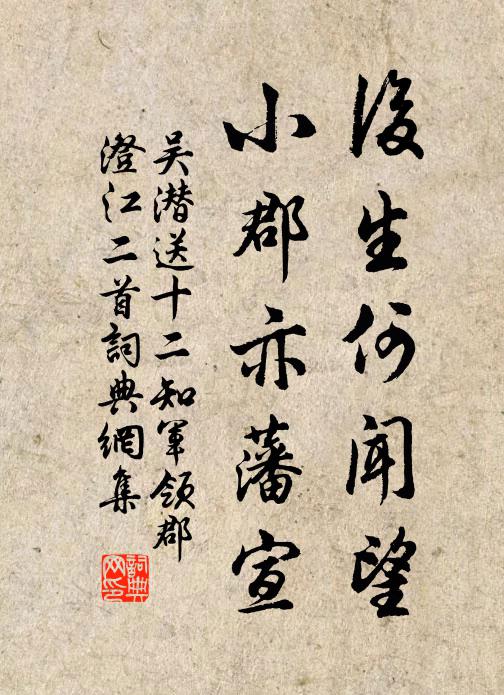 後生何聞望
小郡亦藩宣
吴潜送十二知軍領郡
澄江二首詞典網集
詞典網印